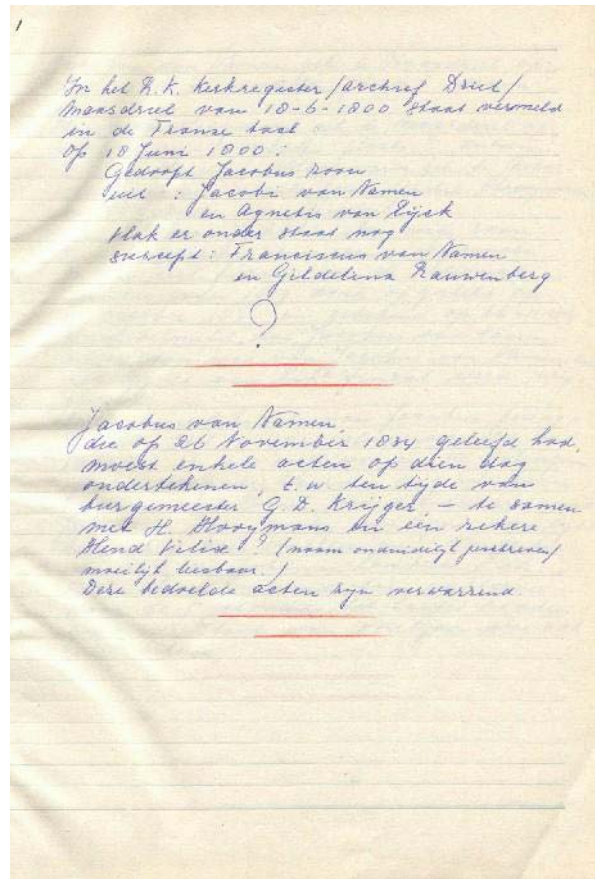 1
In het R.K. Kerkregister (archief Driel)
Maasdriel van 18-6-1800 staat vermeld
in de Franse taal
op 18 Juni 1800:
Gedoopt Jacobus zoon
uit : Jacobi van Namen
en Agnetis van Eijck
vlak er onder staat nog
suscept: Franciscus van Namen
en Gildelina Rauwenberg
?
Jacobus van Namen,
die op 26 November 1834 geleefd had,
moest enkele acten op dien dag
ondertekenen, t.w. ten tyde van
burgemeester G.D. Krijger, – te samen
met H. Hooymans en een zekere
Hend ? (naam onduidelijk geschreven/
moeilijk leesbaar.)
Deze bedoelde acten zijn verwarrend.